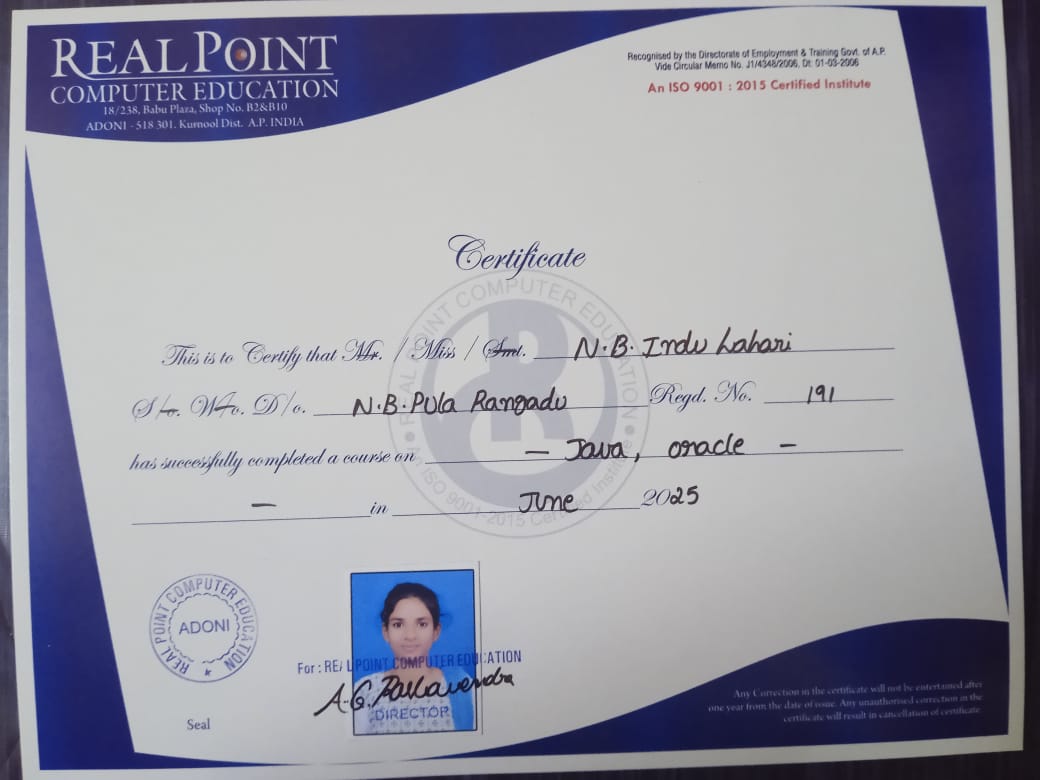 REAL POINT
COMPUTER EDUCATION
18/238, Babu Plaza, Shop No. B2&B10
ADONI - 518 301. Kurnool Dist. A.P. INDIA
Recognised by the Directorate of Employment & Training Govt. of A.P.
Vide Circular Memo No. J1/4348/2006, Dt: 01-03-2006
An ISO 9001 : 2015 Certified Institute
Certificate
REAL POINT COMPUTER EDUCATION
An ISO 9001-2015 Certified Institute
This is to Certify that Mr. / Miss / Smt. N.B. Indu Lahari
S/o. W/o. D/o. N.B. Pula Rangadu Regd. No. 191
has successfully completed a course on – Java, oracle –
– in June 2025
REAL POINT COMPUTER EDUCATION
ADONI
Seal
For : REAL POINT COMPUTER EDUCATION
A.G. Raghavendra
DIRECTOR
Any Correction in the certificate will not be entertained after
one year from the date of issue. Any unauthorised correction in the
certificate will result in cancellation of certificate.